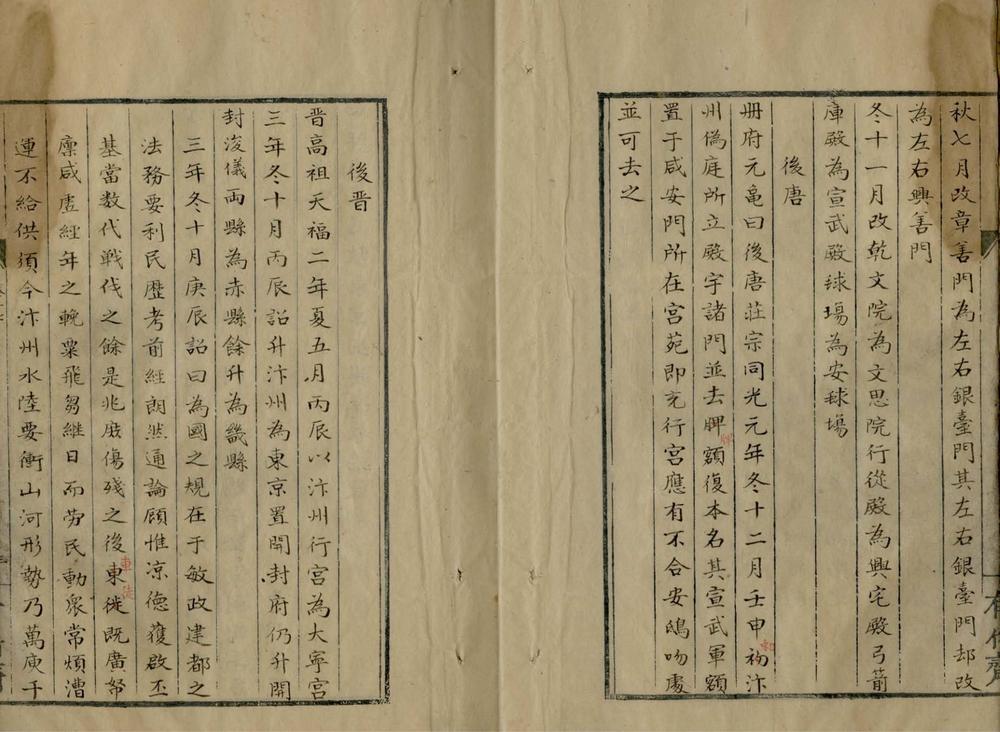 秋七月改章善門為左右銀臺門其左右銀臺門却改
為左右興善門
冬十一月改乾文院為文思院行從殿為興宅殿弓箭
庫殿為宣武殿毬場為安毬場
後唐
冊府元亀曰後唐莊宗同光元年冬十二月壬申礿汴
州偽庭所立殿宇諸門並去牌額復本名其宣武軍額
置于咸安門所在宮苑即充行宮應有不合安鴟吻䖏
並可去之
後晋
晋高祖天福二年夏五月丙辰以汴州行宮為大寧宮
三年冬十月丙辰詔升汴州為東京置開封府仍升開
封浚儀両縣為赤縣餘升為畿縣
三年冬十月庚辰詔曰為國之規在于敏政建都之
法務要利民歴考前経朗然通論顧惟凉德獲啟丕
基當数代戦伐之餘是兆庶傷殘之後東徙既廣帑
廪咸虗経年之輓粟飛芻継日而勞民動衆常煩漕
運不給供須今汴州水陸要衝山河形勢乃萬庾千